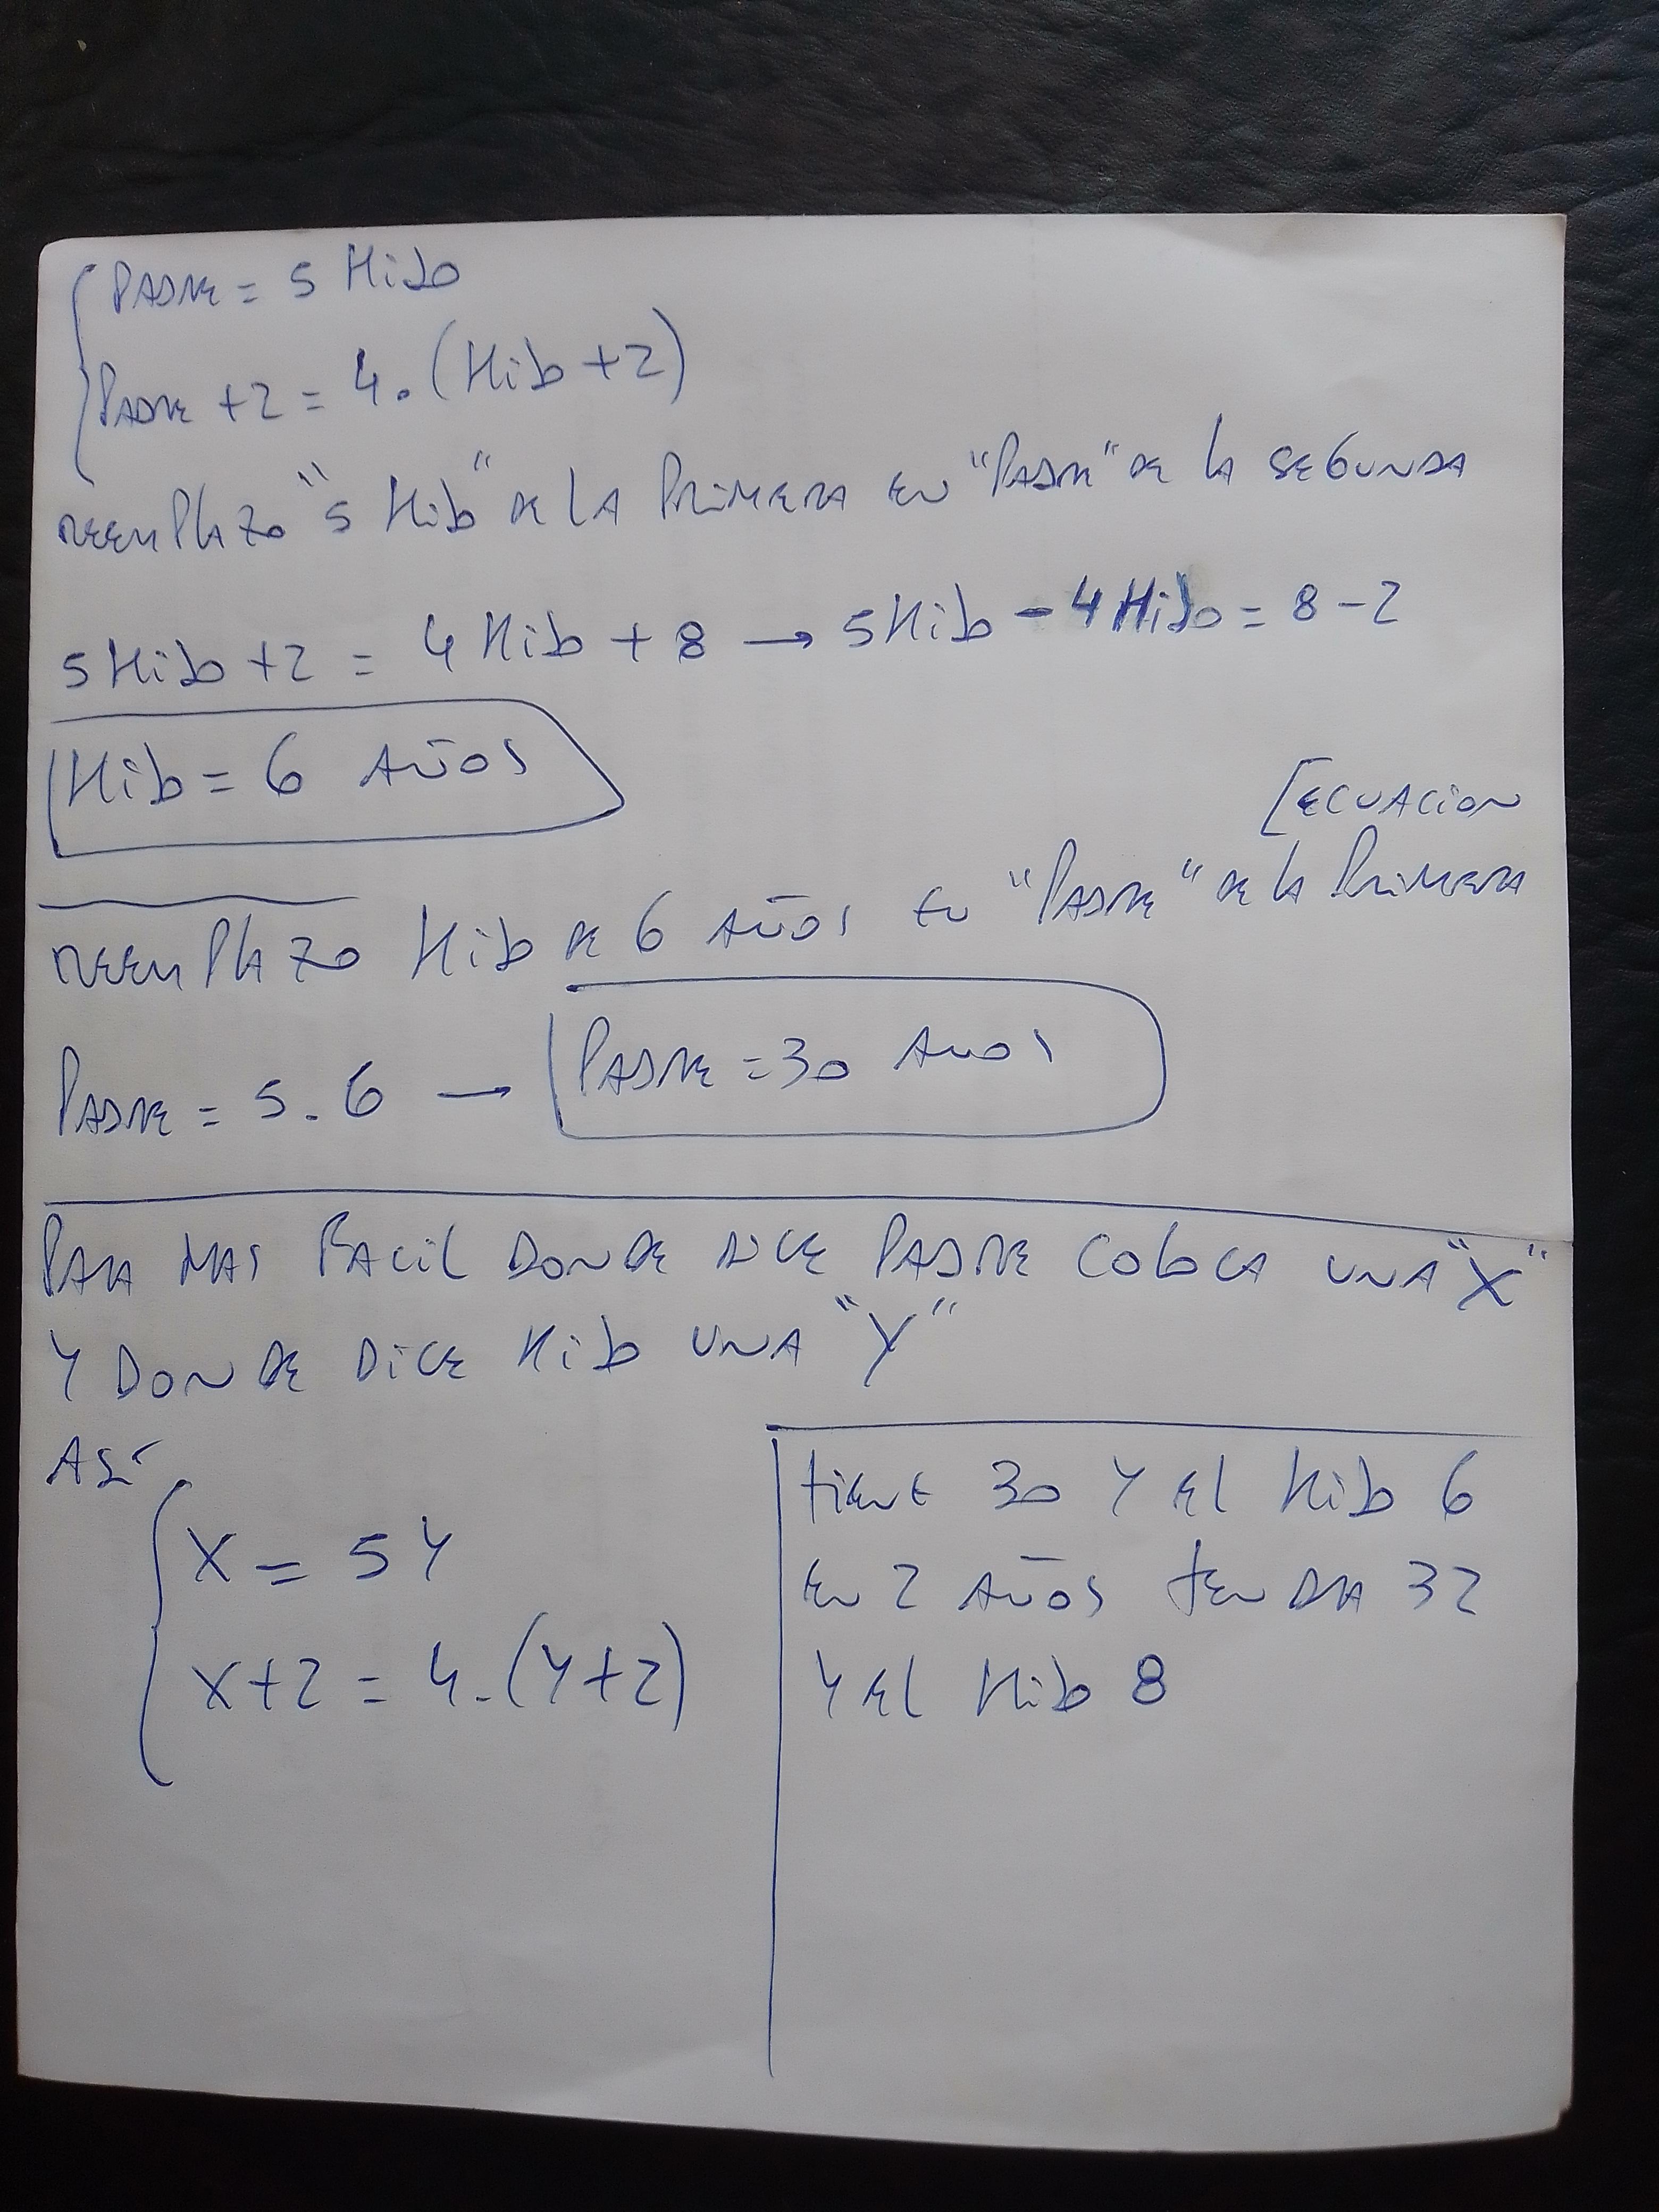 PADRE = 5 HiJo
PADRE + 2 = 4. (HiJo + 2)
REEMPLAZO "5 HiJo" DE LA PRIMERA EN "PADRE" DE LA SEGUNDA
5 HiJo + 2 = 4 HiJo + 8 → 5 HiJo - 4 HiJo = 8 - 2
HiJo = 6 AÑOS
[ECUACION
REEMPLAZO HiJo DE 6 AÑOS EN "PADRE" DE LA PRIMERA
PADRE = 5 . 6 → PADRE = 30 AÑOS
PARA MAS FACIL DONDE DICE PADRE COLOCA UNA "X"
Y DONDE DICE HiJo UNA "Y"
ASÍ
X = 5Y
X+2 = 4. (Y+2)
tiENE 30 Y EL HiJo 6
EN 2 AÑOS tENDRA 32
Y EL HiJo 8